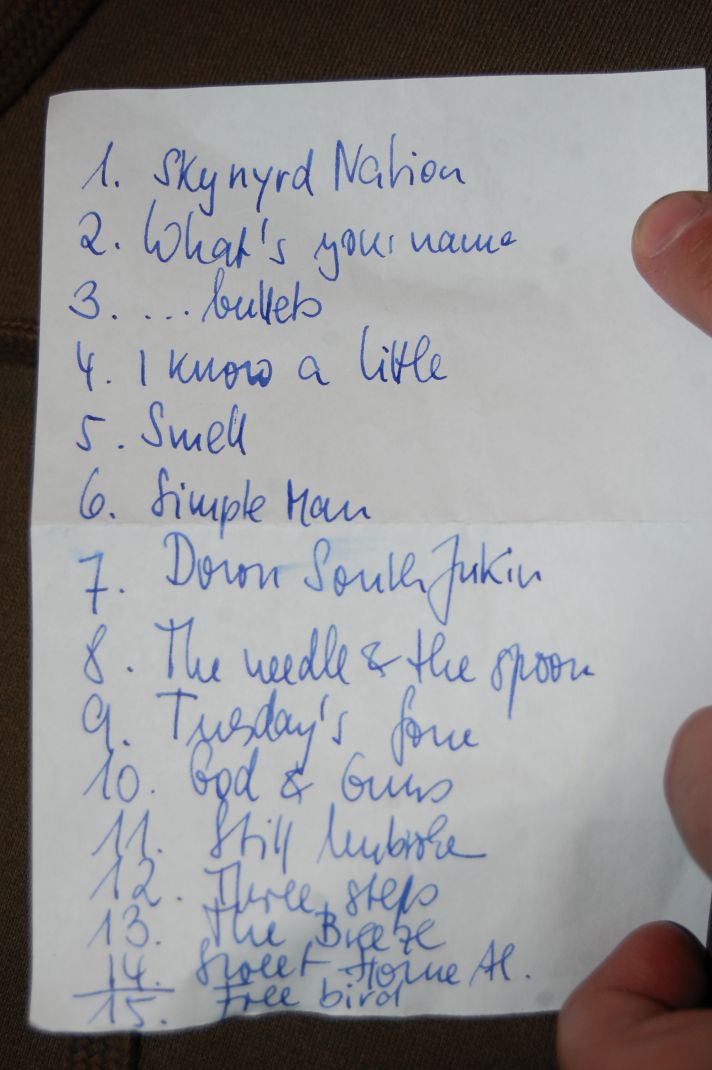 1. Skynyrd Nation
2. What's your name
3. ... bullets
4. I know a little
5. Smell
6. Simple Man
7. Down South Jukin
8. The needle & the spoon
9. Tuesday's gone
10. God & Guns
11. Still Unbroke
12. Three steps
13. The Breeze
14. Sweet Home Al.
15. Free bird